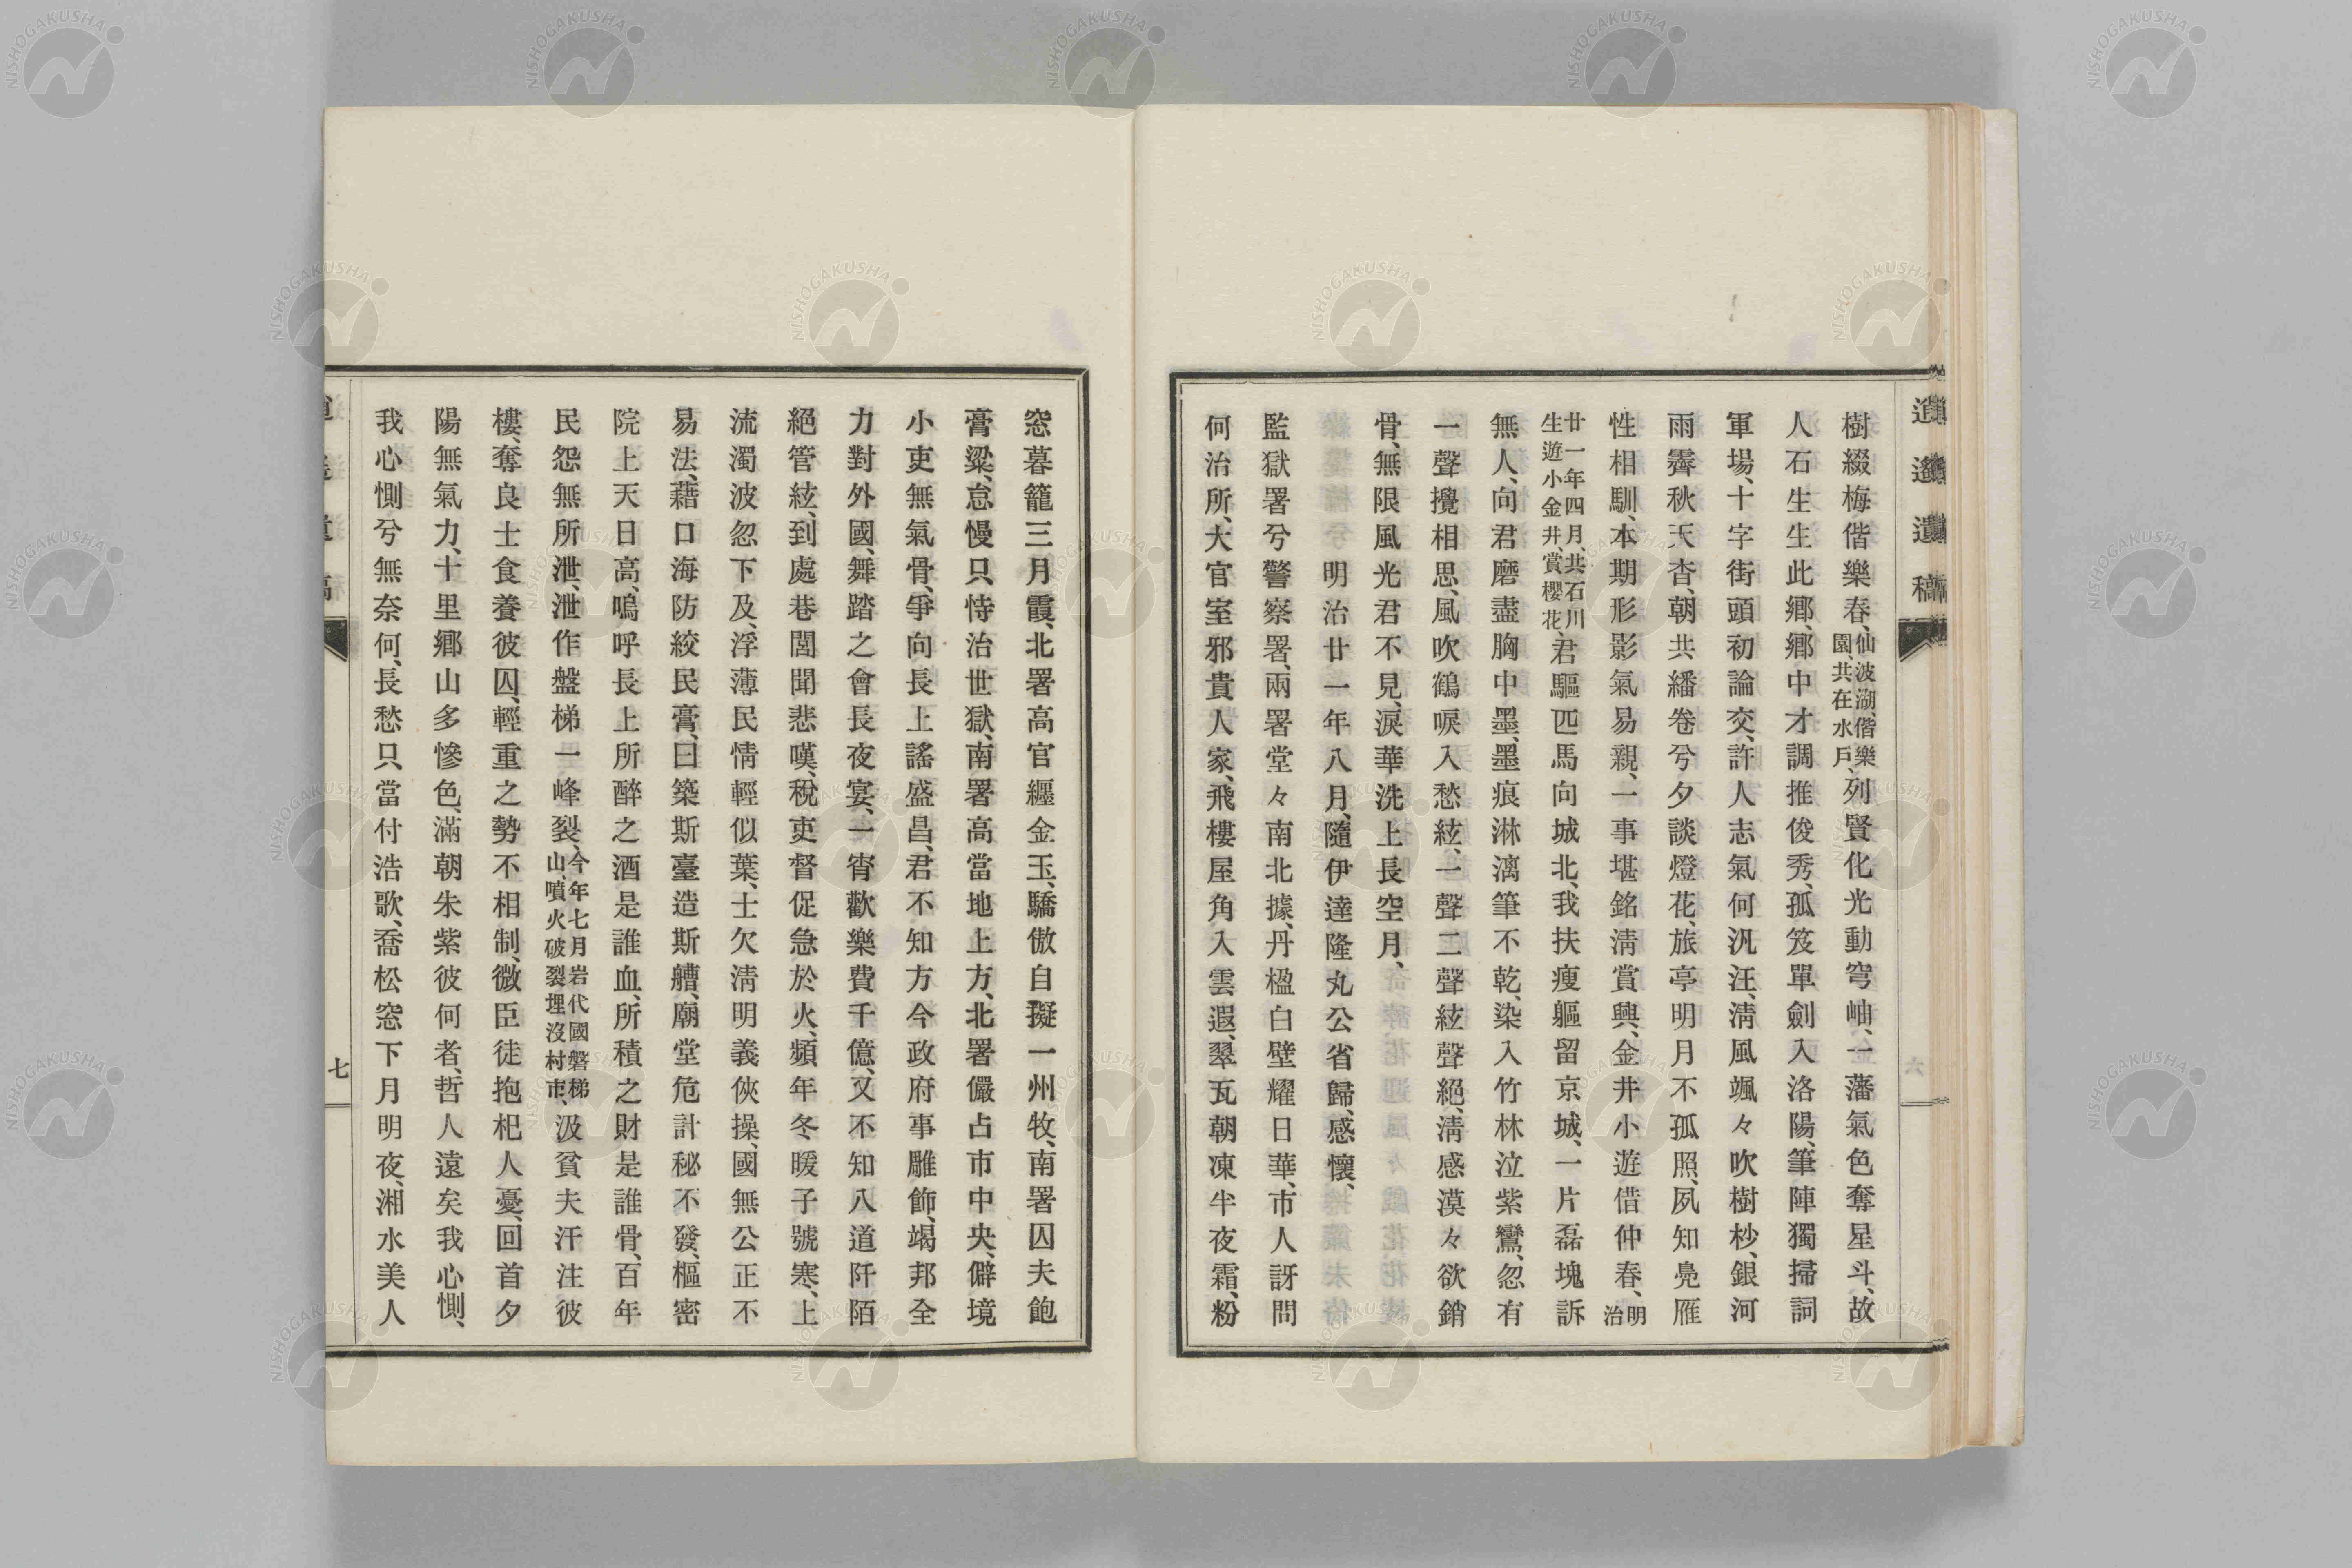 逍遙遺稿
樹綴梅、偕樂春、仙波湖、偕樂園、共在水戶、列賢化光動穹岫、一藩氣色奪星斗、故
人石生生此鄉、鄉中才調推俊秀、孤笈單劍入洛陽、筆陣獨掃詞
軍場、十字街頭初論交、許人志氣何汎汪、淸風颯々吹樹杪、銀河
雨霽秋天杳、朝共繙卷兮夕談燈花、旅亭明月不孤照、夙知鳧雁
性相馴、本期形影氣易親、一事堪銘淸賞興、金井小遊借仲春、明治
廿一年四月、共石川生遊小金井、賞櫻花、君驅匹馬向城北、我扶瘦軀留京城、一片磊塊訴
無人、向君磨盡胸中墨、墨痕淋漓筆不乾、染入竹林泣紫鸞、忽有
一聲攪相思、風吹鶴唳入愁絃、一聲二聲絃聲絕、淸感漠々欲銷
骨、無限風光君不見、淚華洗上長空月、
明治廿一年八月、隨伊達隆丸公省歸、感懷、
監獄署兮警察署、兩署堂々南北據、丹楹白壁耀日華、市人訝問
何治所、大官室邪貴人家、飛樓屋角入雲遐、翠瓦朝凍半夜霜、粉
窓暮籠三月霞、北署高官纒金玉、驕傲自擬一州牧、南署囚夫飽
膏粱、怠慢只恃治世獄、南署高當地上方、北署儼占市中央、僻境
小吏無氣骨、爭向長上謠盛昌、君不知方今政府事雕飾、竭邦全
力對外國、舞踏之會長夜宴、一宵歡樂費千億、又不知八道阡陌
絕管絃、到處巷閭聞悲嘆、稅吏督促急於火、頻年冬暖子號寒、上
流濁波忽下及、浮薄民情輕似葉、士欠淸明義俠操、國無公正不
易法、藉口海防絞民膏、曰築斯臺造斯艚、廟堂危計秘不發、樞密
院上天日高、嗚呼長上所醉之酒是誰血、所積之財是誰骨、百年
民怨無所泄、泄作盤梯一峰裂、今年七月岩代國磐梯山、噴火破裂埋沒村市、汲貧夫汗注彼
樓、奪良士食養彼囚、輕重之勢不相制、微臣徒抱杞人憂、回首夕
陽無氣力、十里鄉山多慘色、滿朝朱紫彼何者、哲人遠矣我心惻、
我心惻兮無奈何、長愁只當付浩歌、喬松窓下月明夜、湘水美人
七